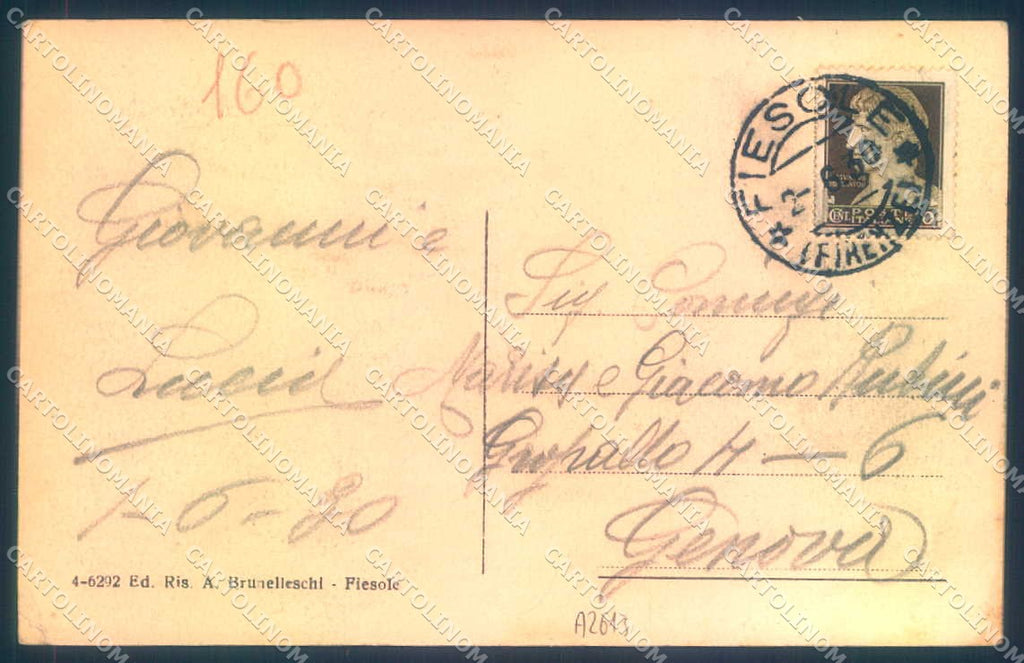 160
FIESOLE
(FIRENZE)
Giovanni e
Lucia
1-6-30
Sig. Coniugi
e Giacomo
Gropallo 4 - 6
Genova
4-6292 Ed. Ris. A. Brunelleschi - Fiesole
A2613
CARTOLINOMANIA